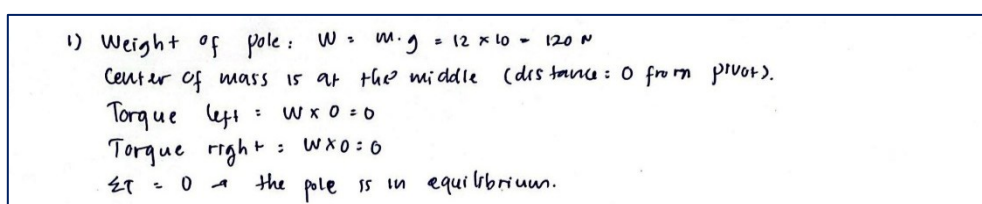 1) Weight of pole : W = m.g = 12 × 10 = 120 N
Center of mass is at the middle (distance : 0 from pivot).
Torque left : W x 0 = 0
Torque right : W x 0 : 0
Στ = 0 → the pole is in equilibrium.